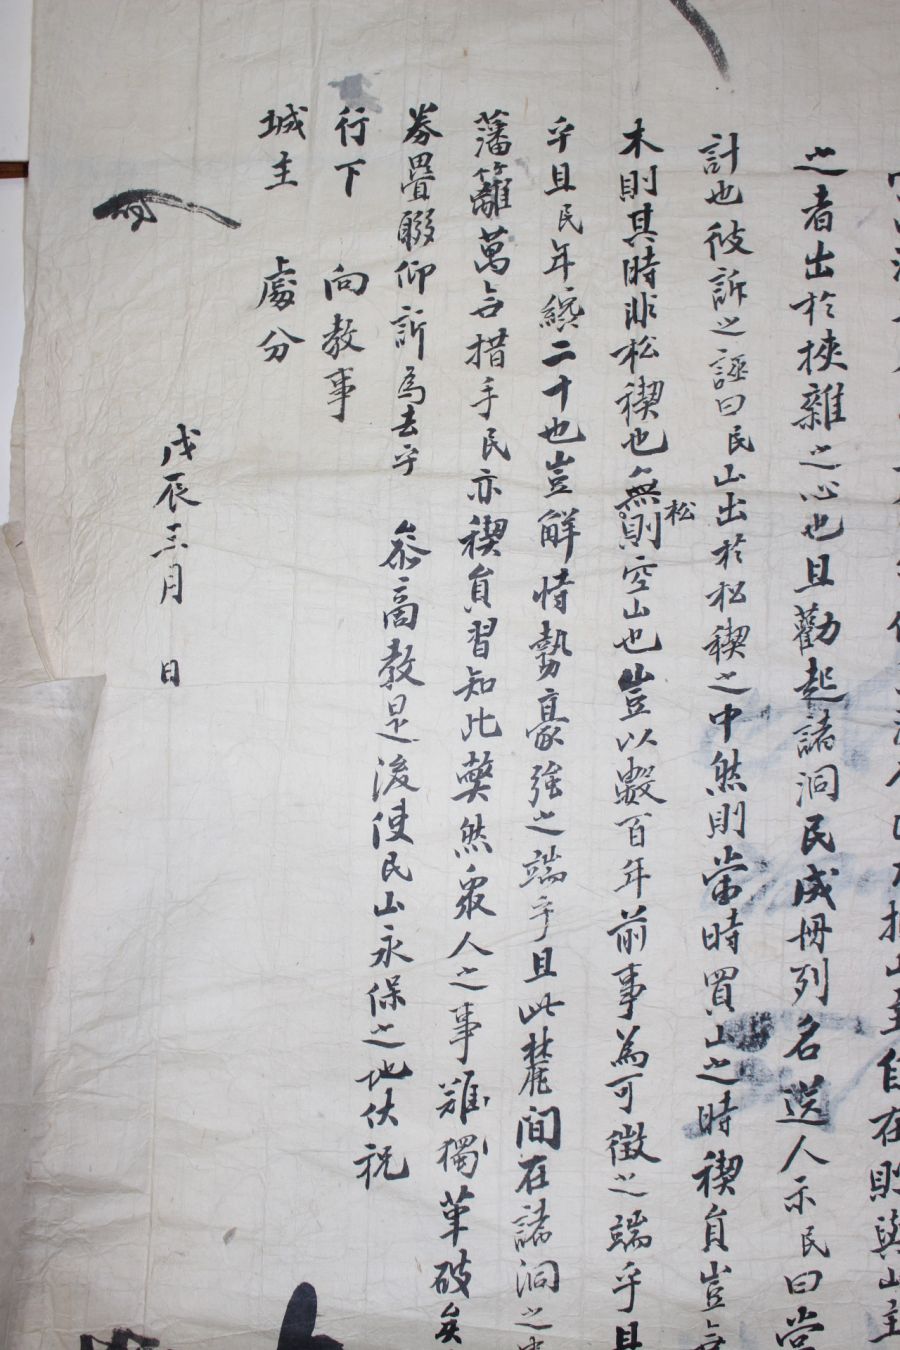 之者出於挾雜之心也且勸起諸洞民成冊列名送人示民曰當
計也彼訴之誣曰民山出於松稧之中然則當時買山之時稧員豈無
木則其時非松稧也無松則空山也豈以數百年前事為可徵之端乎且
乎且民年纔二十也豈解恃勢豪強之端乎且此麓間在諸洞之中
藩籬萬無措手民亦稧員習知此弊然衆人之事難獨革破矣
券疊聯仰訴為去乎 參商教是後使民山永保之地伏祝
行下 向教事
城主 處分
戊辰三月 日